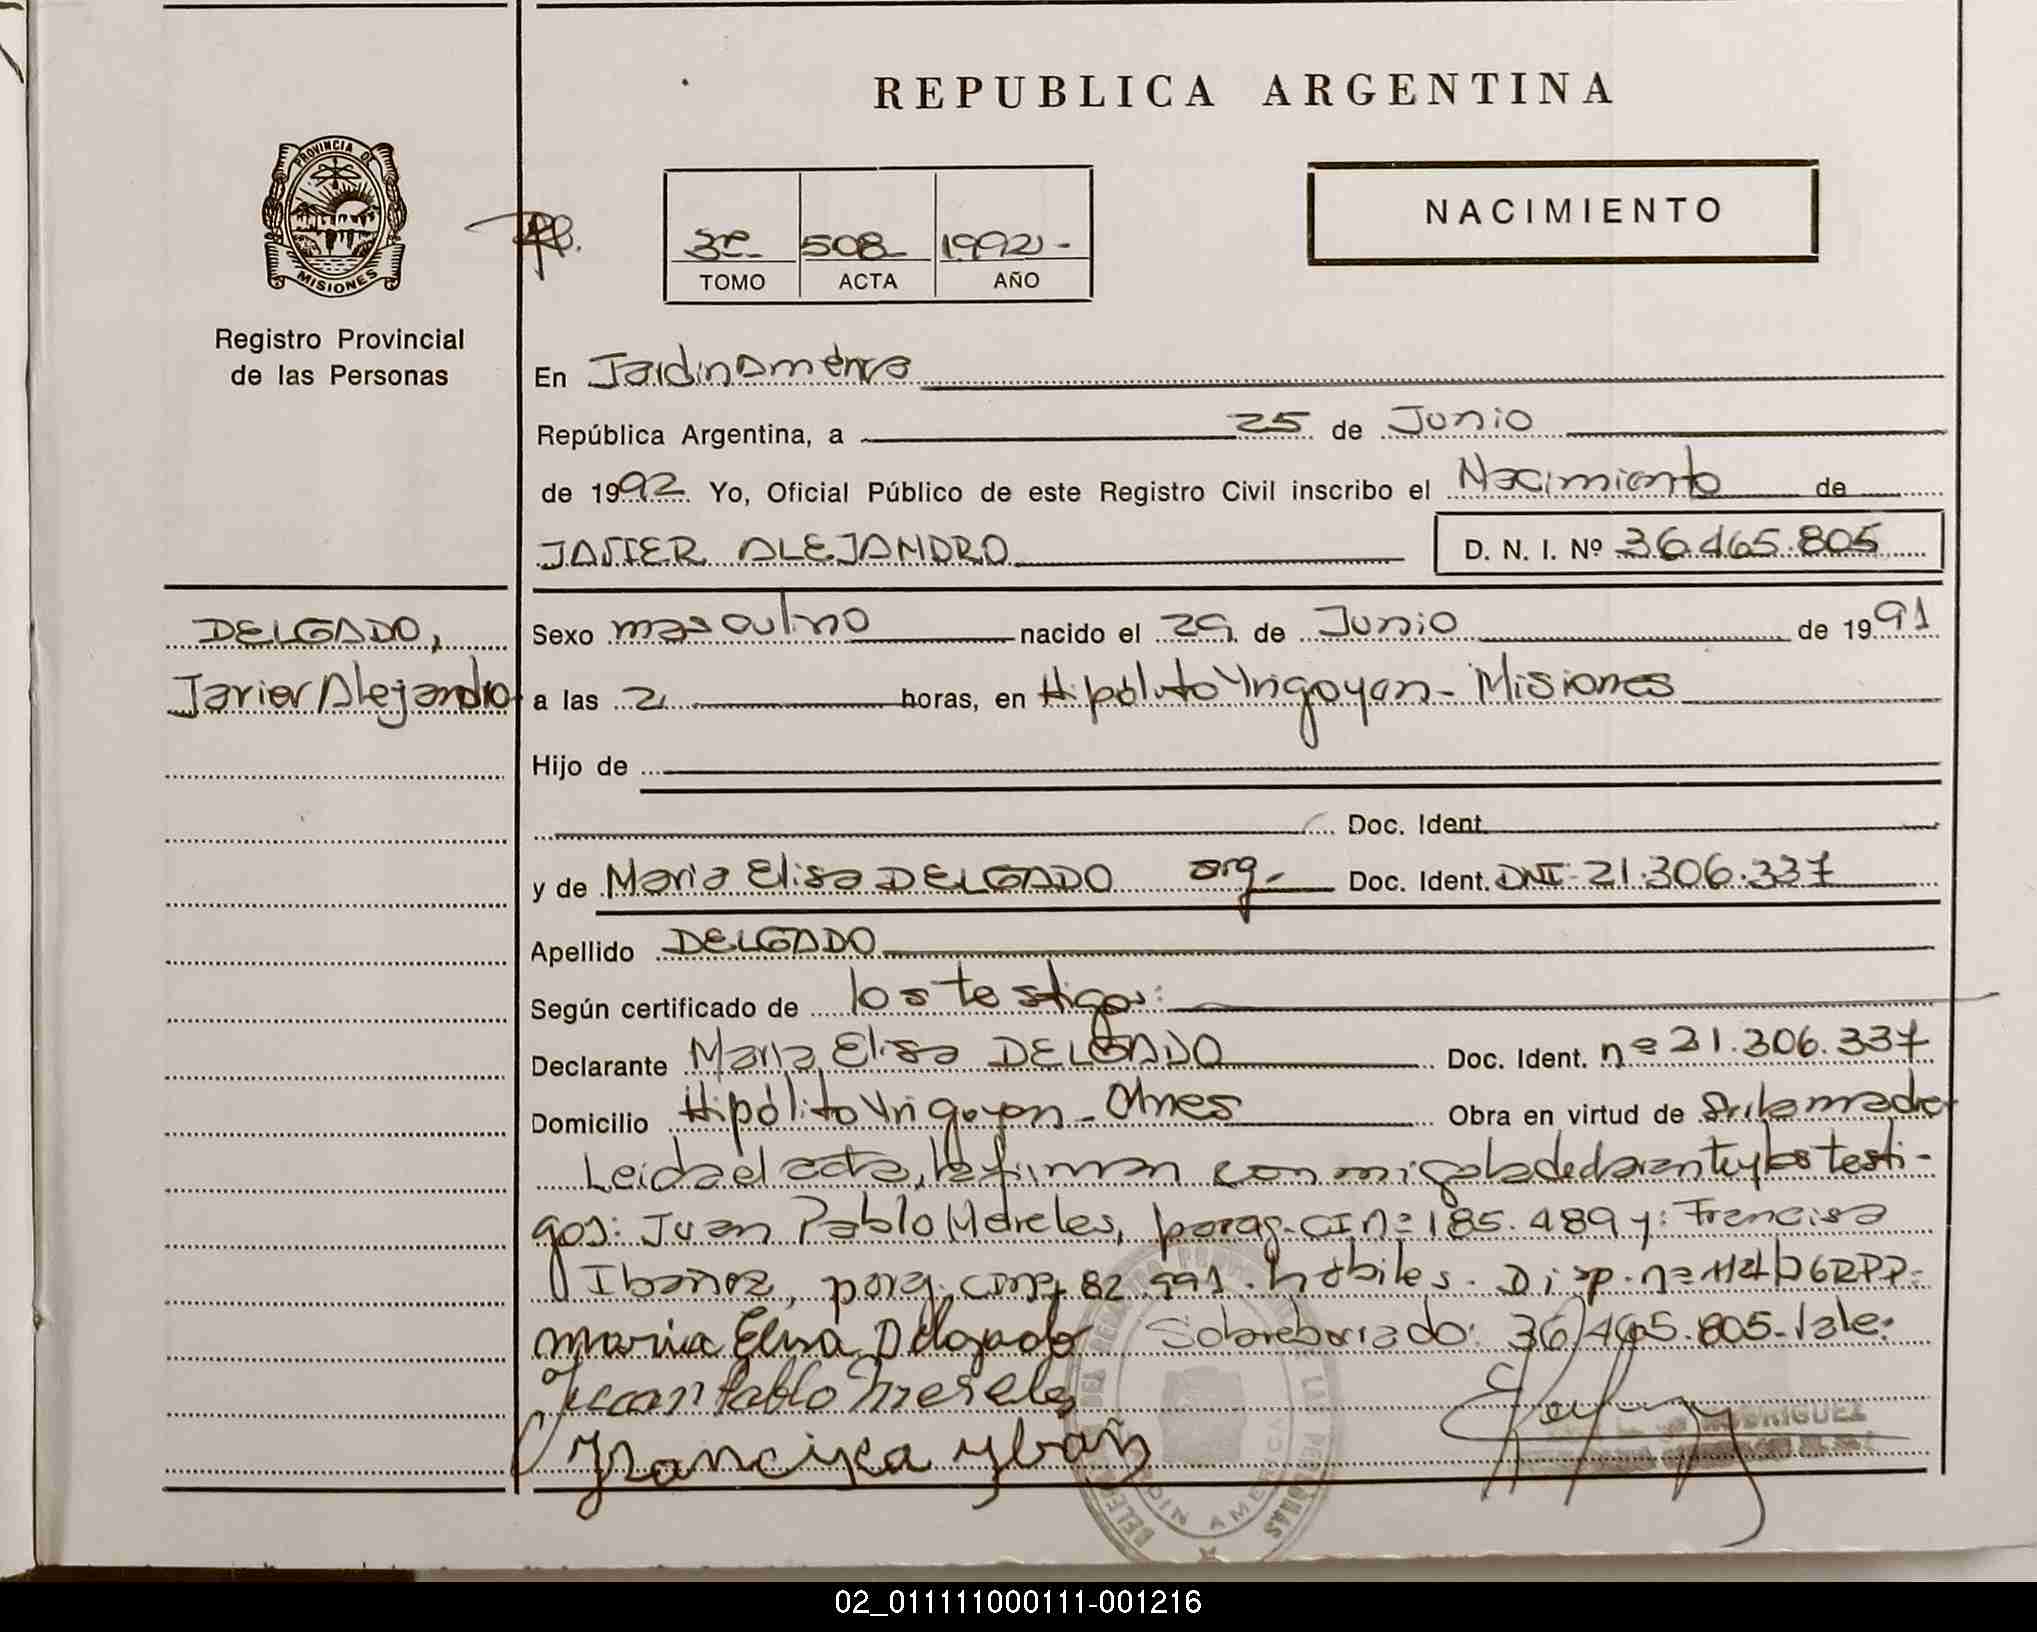 REPUBLICA ARGENTINA
PROVINCIA DE
MISIONES
Registro Provincial
de las Personas
3º 508 1992
TOMO ACTA AÑO
NACIMIENTO
En Jardin América
República Argentina, a 25 de Junio
de 1992 Yo, Oficial Público de este Registro Civil inscribo el Nacimiento de
JAVIER ALEJANDRO D. N. I. Nº 36.465.805
DELGADO,
Javier Alejandro
Sexo masculino nacido el 29 de Junio de 1991
a las 2 horas, en Hipólito Yrigoyen - Misiones
Hijo de
Doc. Ident.
y de Maria Elisa DELGADO arg. Doc. Ident. DNI 21.306.337
Apellido DELGADO
Según certificado de los testigos:
Declarante Maria Elisa DELGADO Doc. Ident. nº 21.306.337
Domicilio Hipólito Yrigoyen - Mnes Obra en virtud de Ser la madre
Leida el acta, la firman conmigo la declarante y los testi-
gos: Juan Pablo Mereles, parag. CI nº 185.489 y: Francisca
Ibañez, parag. 82.991. hábiles. Disp. nº
Maria Elisa Delgado Sobreborrado: 36.465.805. Vale:
Juan Pablo Mereles
Francisca Ybañ
RODRIGUEZ
02_011111000111-001216